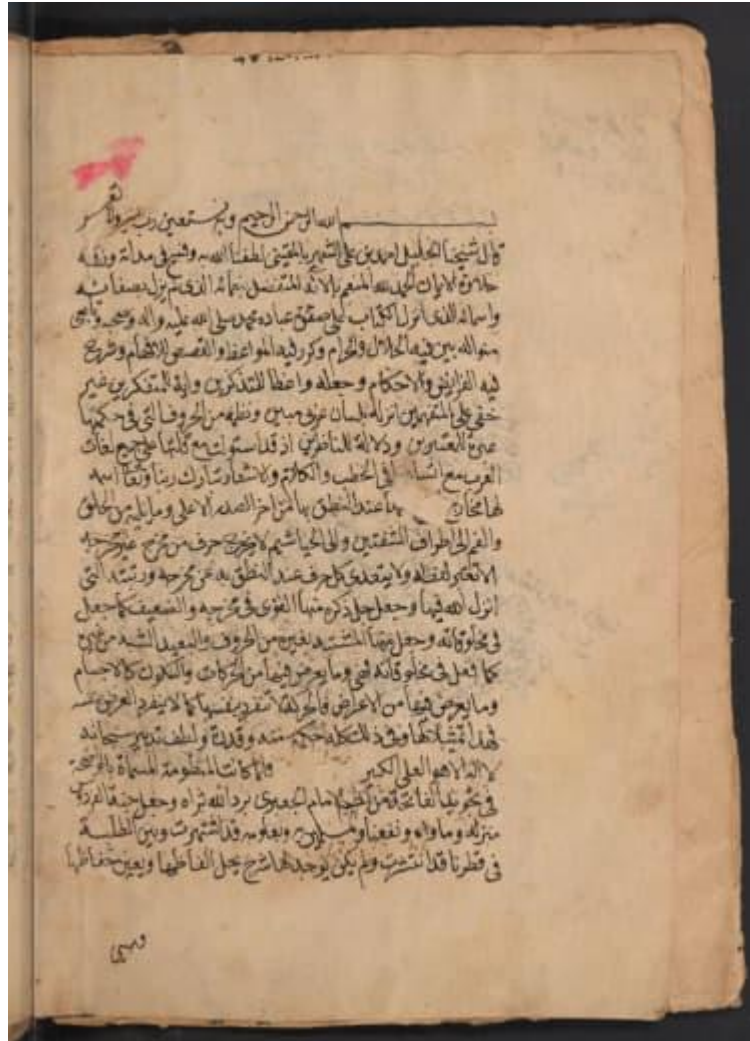 بسم الله الرحمن الرحيم وبه نستعين رب يسر ولا تعسر
قال شيخنا الجليل احمد بن على الشهير بالمقينى لطف الله به وفسح فى مدته ورزقه
حلاوة الايمان الحمد لله المنعم بالائه المتفضل بنعمائه الذى لم يزل بصفاته
واسمائه الذى انزل الكتاب على صفوة عباده محمد صلى الله عليه واله وصحبه
الله بين فيه الحلال والحرام وكرر فيه المواعظ والقصص للافهام وشرح
فيه الفرايض والاحكام وجعله واعظا للمتذكرين واية للمتفكرين غير
خفى على المتفهمين انزله بلسان عربى مبين ونظمه من الحروف التى فى حكمتها
عبرة للمعتبرين ودلالة للناظرين اذ قد استولت مع قلتها على جميع لغات
العرب مع فى الخطب والكلام والاشعار تبارك ربنا وتعالى
لها مخارج عند النطق بها من اخر الصدر الاعلى وما يليه من الحلق
والفم الى اطراف الشفتين والى الخياشيم لا يخرج حرف من مخرج غير مخرجه
الا بتغير لفظه ولا يتعدى كل حرف عند النطق به عن مخرجه ورتبته التى
انزل الله فيها وجعل جل ذكره منها القوى فى مخرجه والضعيف كما جعل
فى مخلوقاته وجعل منها المشتبه بغيره من الحروف والبعيد الشبه من
كما فعل فى مخلوقاته فهى وما يعرض فيها من الحركات والسكون كالاجسام
وما يعرض فيها من الاعراض فالحركة لا تنفرد بنفسها كما لا ينفرد العرض
فهذا تمثيلاتها وفى ذلك كله حكمة منه وقدرة ولطف تدبير سبحانه
لا اله الا هو العلى الكبير ولما كانت المنظومة المسماة بالواضحة
فى تجويد الفاتحة من نظم الامام الجعبرى برد الله ثراه وجعل جنة الفردوس
منزله وماواه ونفعنا به وبعلومه قد اشتهرت وبين الطلبة
فى قطرنا قد انتشرت ولم يكن يوجد لها شرح يحل الفاظها ويعين حفاظها